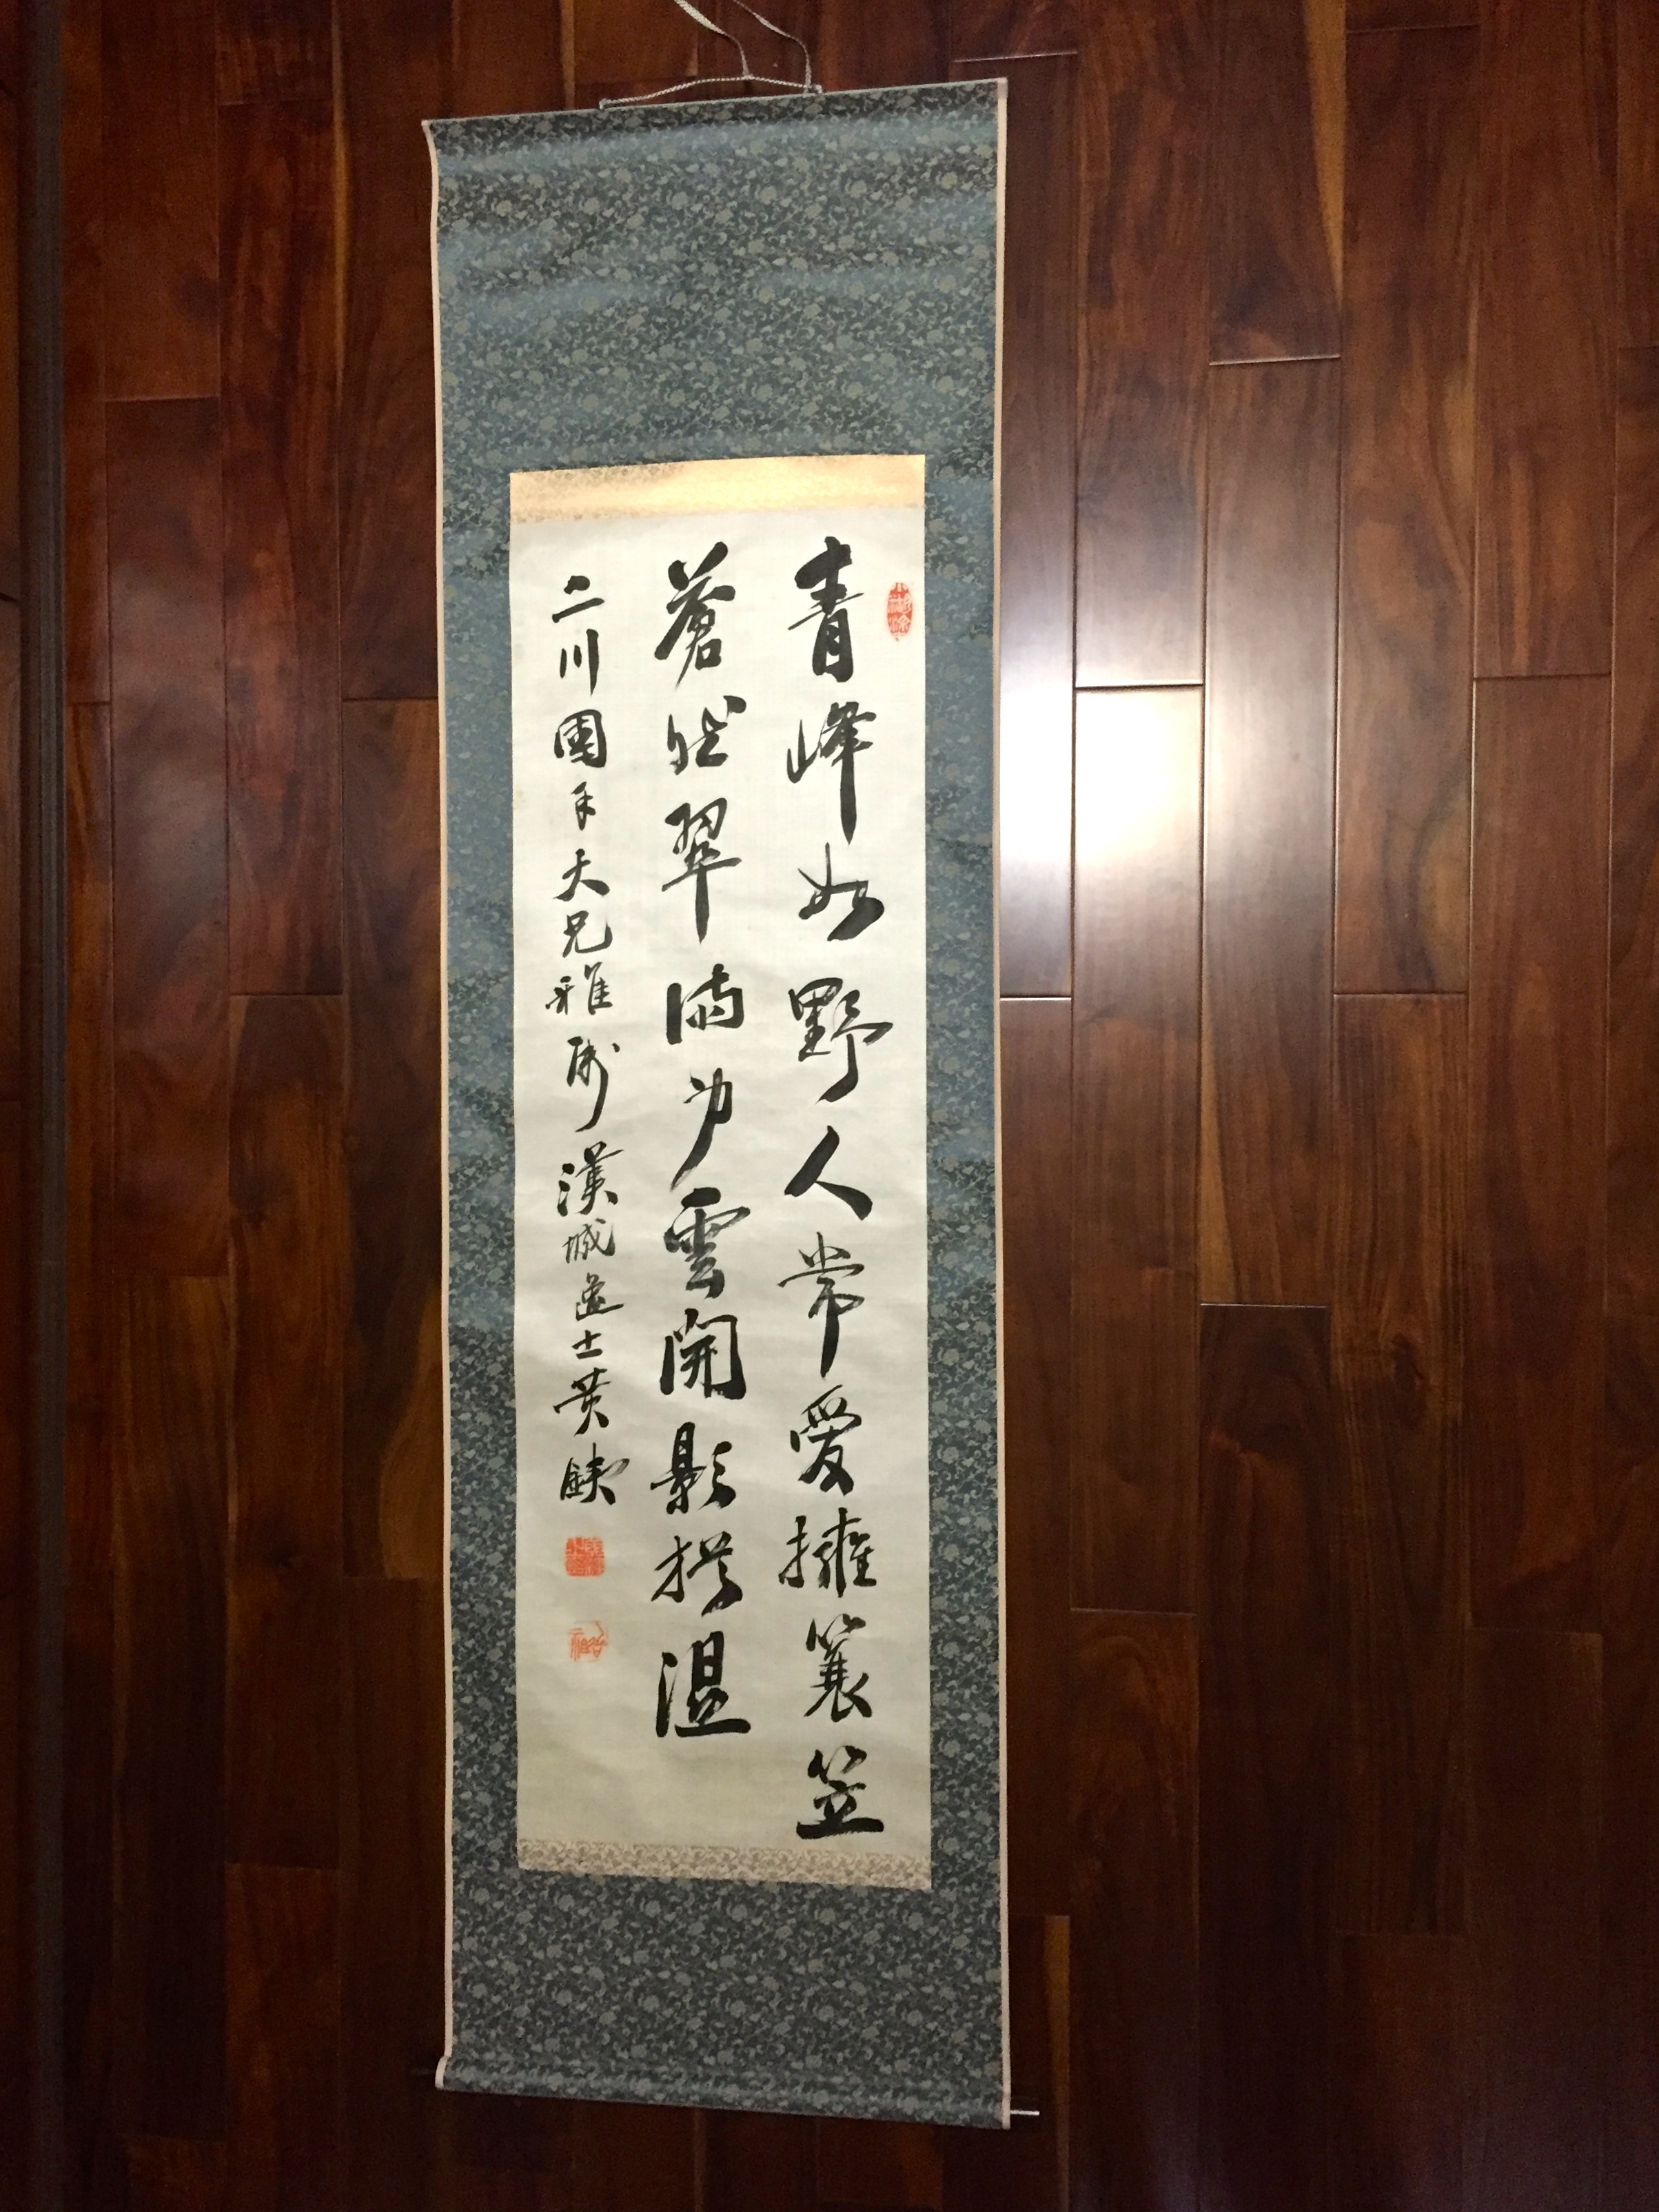 青峰如野人常愛擁蓑笠
蒼然翠滴身雲開影猶湿
二川國手大兄雅屬漢城逸士黃鐵